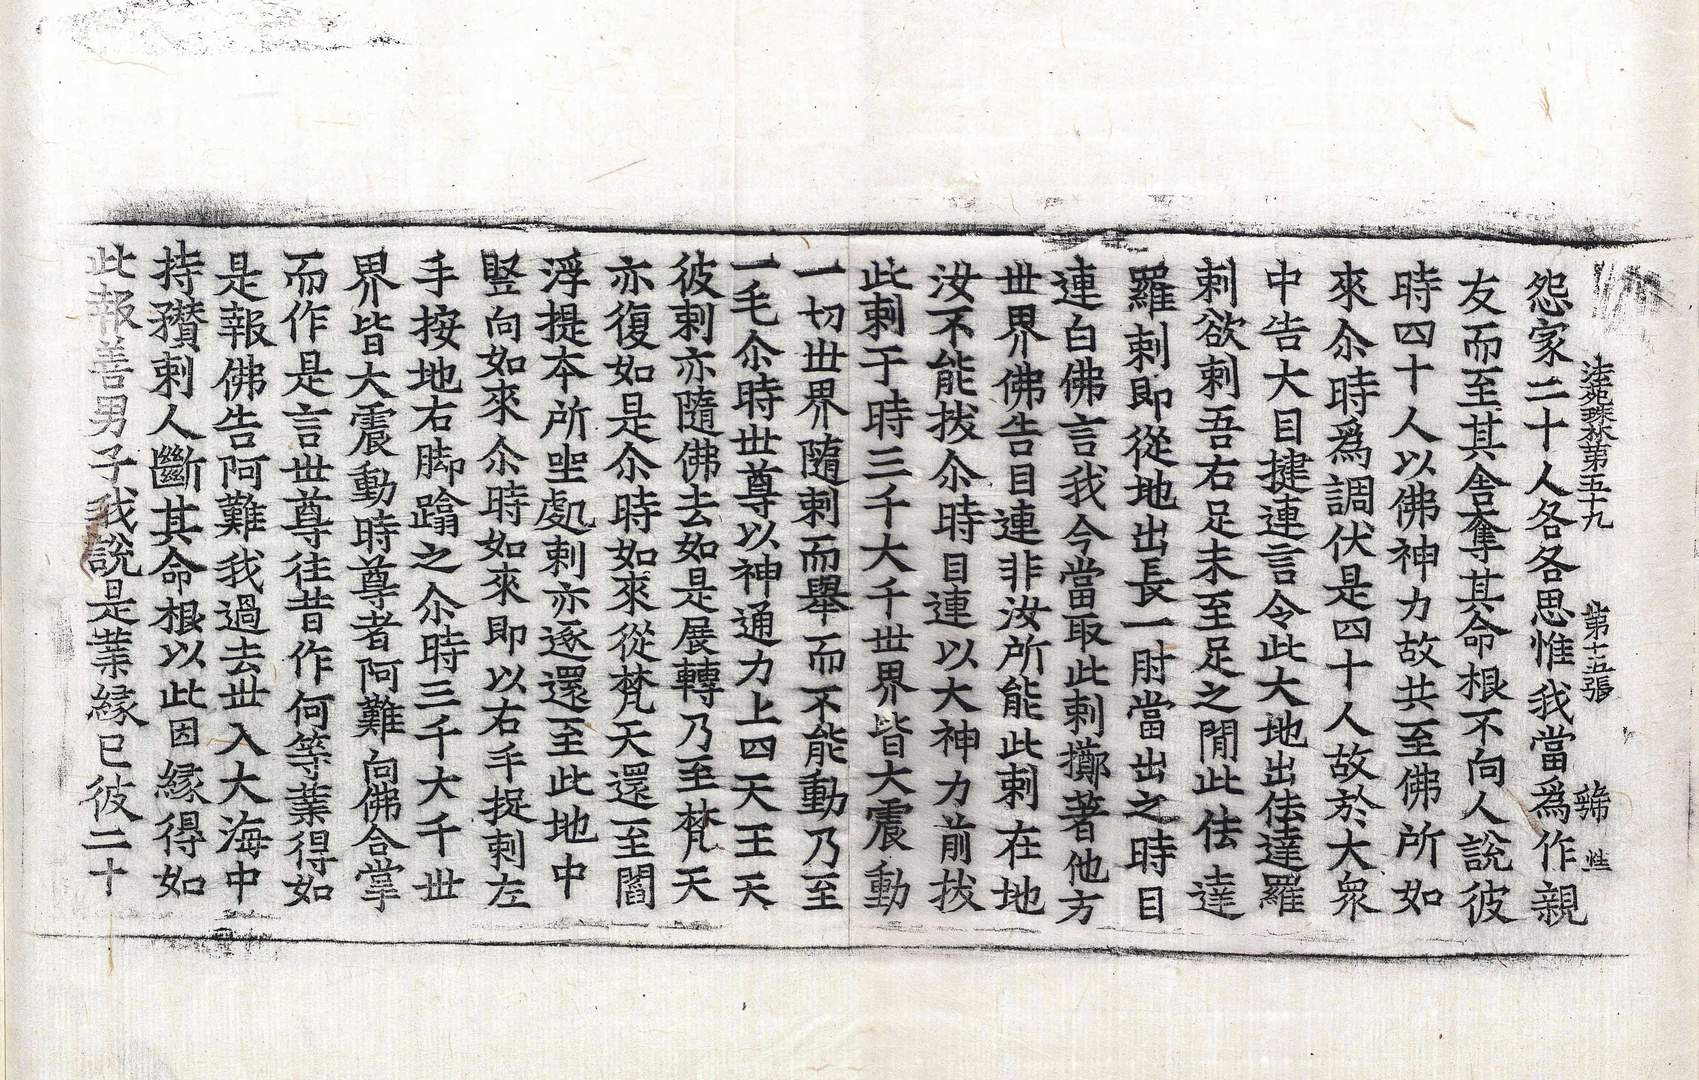 法苑珠林第五十九 第十五張 性
怨家二十人各各思惟我當爲作親
友而至其舍奪其命根不向人說彼
時四十人以佛神力故共至佛所如
來尒時爲調伏是四十人故於大衆
中告大目揵連言令此大地出佉達羅
刺欲刺吾右足未至足之閒此佉達
羅刺即從地出長一肘當出之時目
連白佛言我今當取此刺擲著他方
世界佛告目連非汝所能此刺在地
汝不能拔尒時目連以大神力前拔
此刺于時三千大千世界皆大震動
一切世界隨刺而舉而不能動乃至
一毛尒時世尊以神通力上四天王天
彼刺亦隨佛去如是展轉乃至梵天
亦復如是尒時如來從梵天還至閻
浮提本所坐處刺亦逐還至此地中
竪向如來尒時如來即以右手捉刺左
手按地右脚蹹之尒時三千大千世
界皆大震動時尊者阿難向佛合掌
而作是言世尊往昔作何等業得如
是報佛告阿難我過去世入大海中
持矟刺人斷其命根以此因緣得如
此報善男子我說是業緣已彼二十